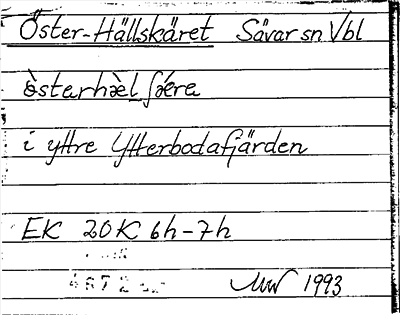 Öster-Hällskäret Sävar sn Vbl
österhäl ſǽra
i yttre Ytterbodafjärden
EK 20K 6h-7h
1993